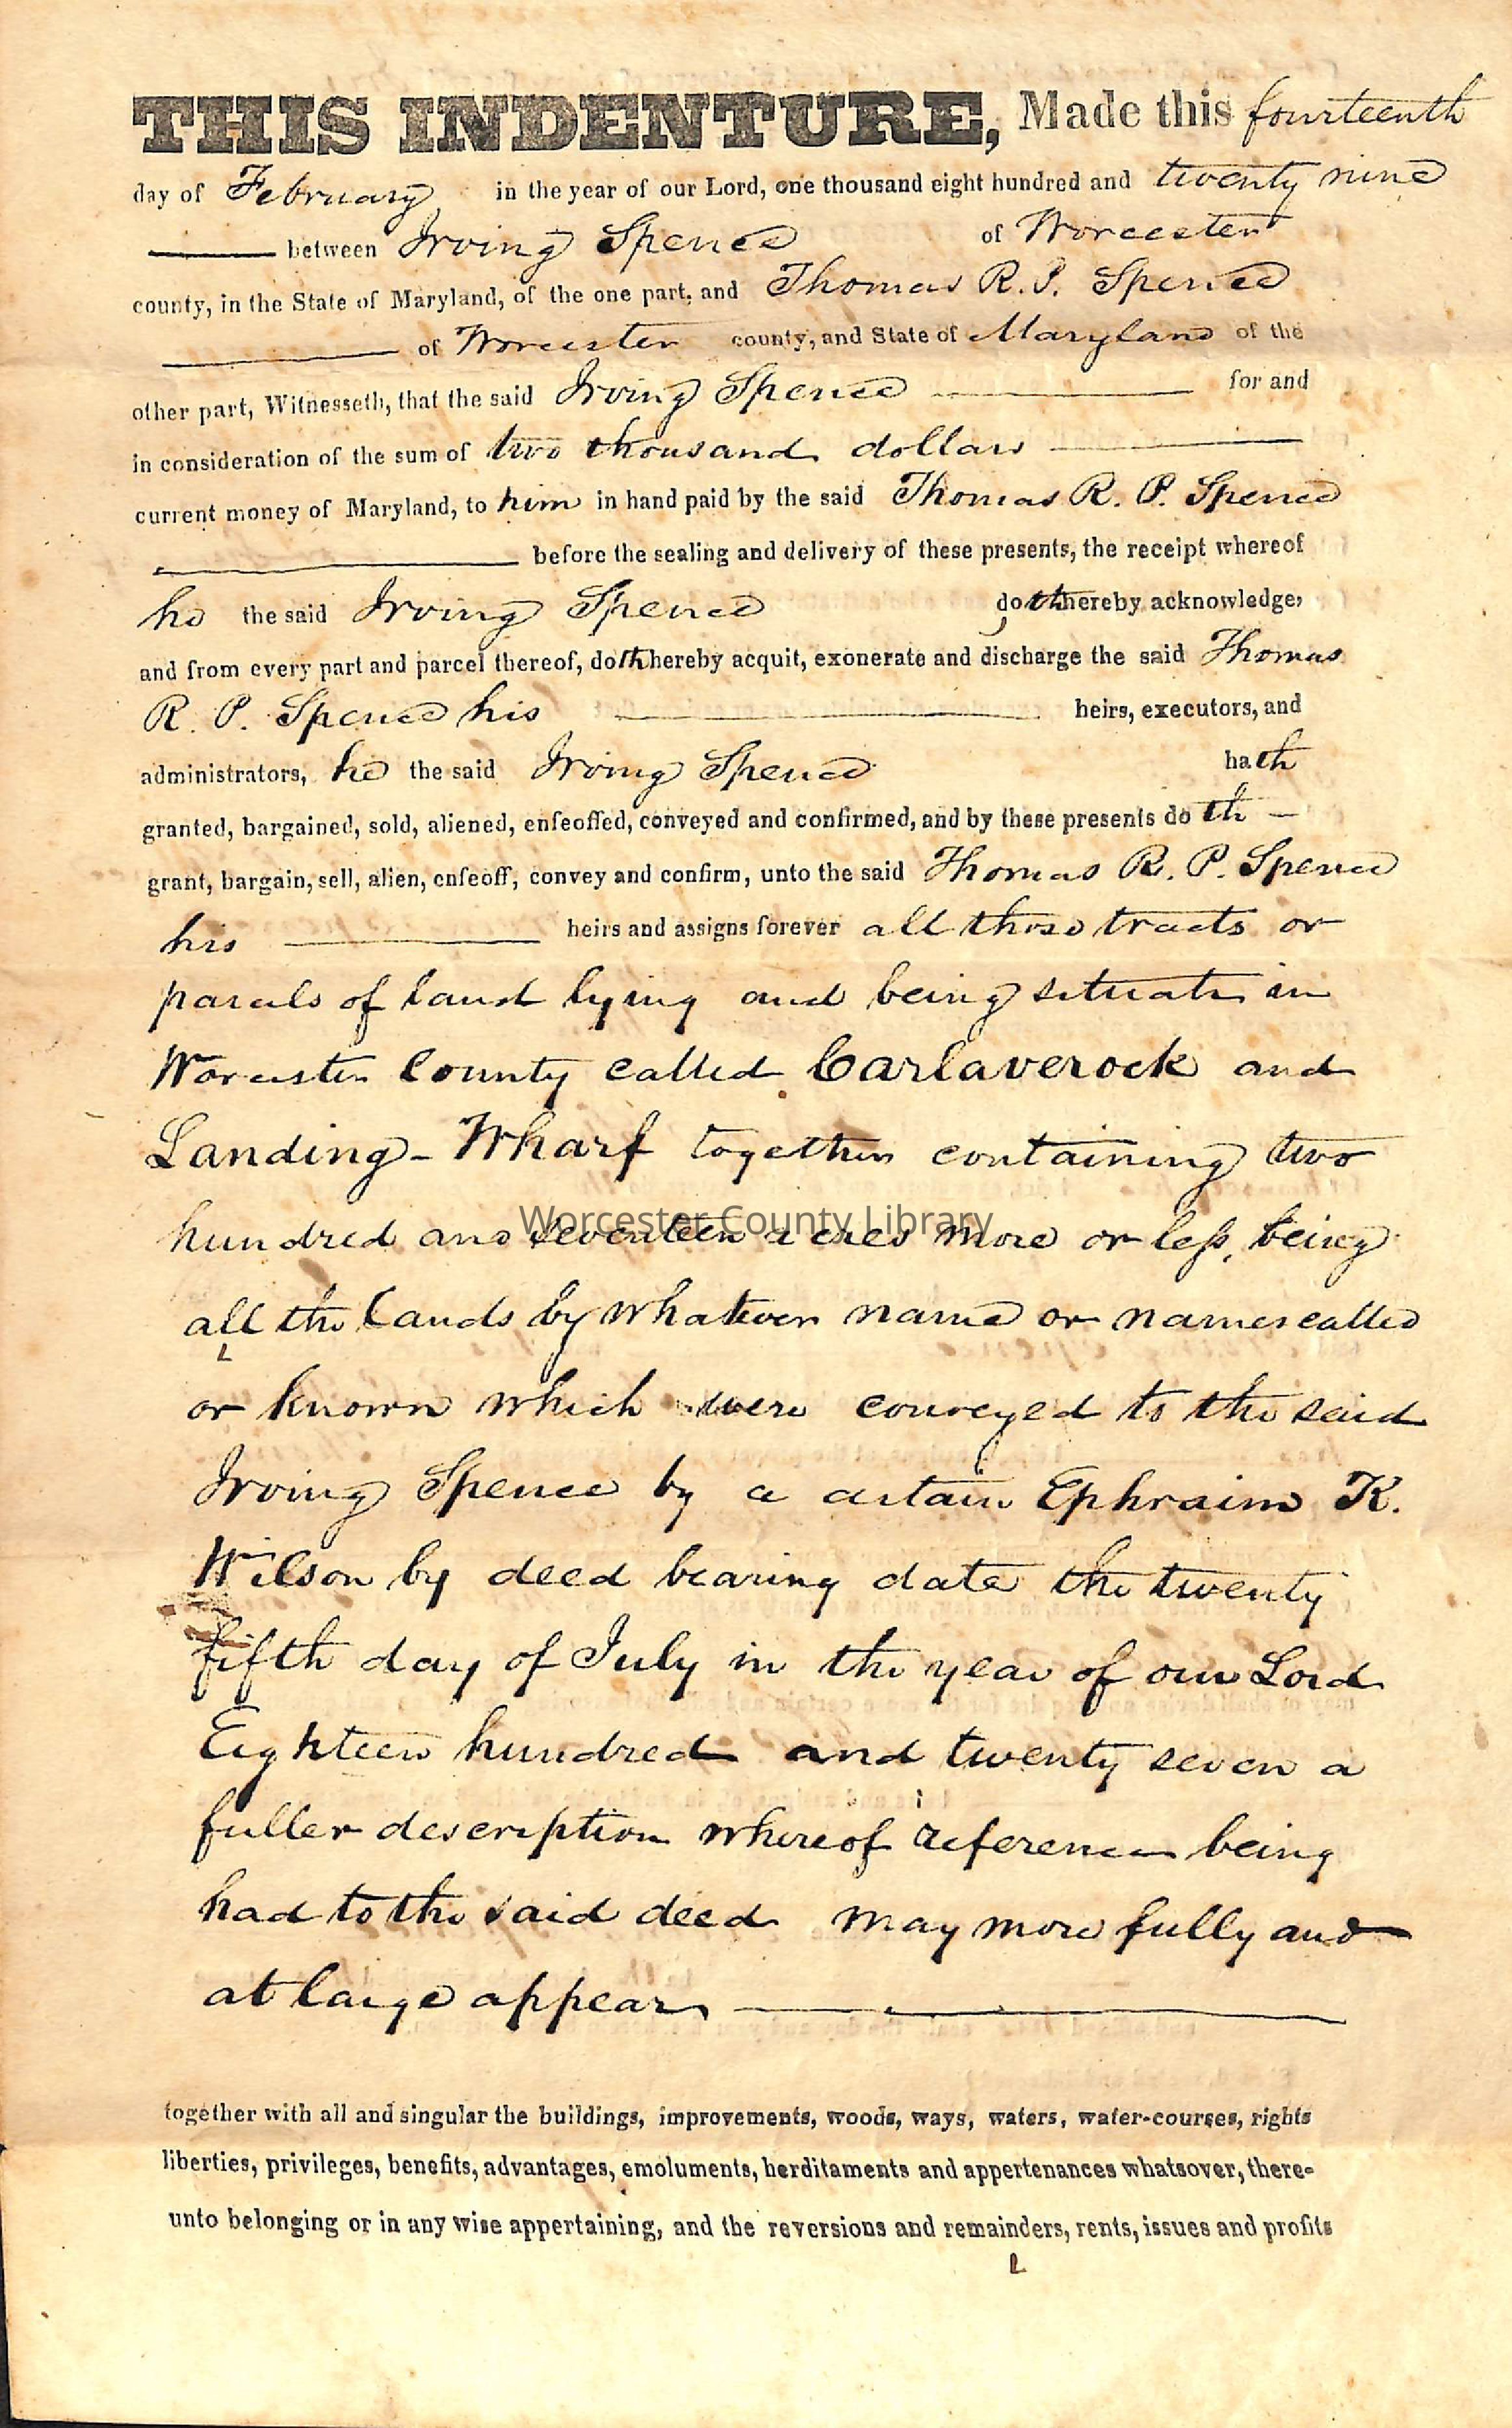 THIS INDENTURE, Made this fourteenth
day of February in the year of our Lord, one thousand eight hundred and twenty nine
between Irving Spence of Worcester
county, in the State of Maryland, of the one part, and Thomas R. P. Spence
of Worcester county, and State of Maryland of the
other part, Witnesseth, that the said Irving Spence for and
in consideration of the sum of two thousand dollars
current money of Maryland, to him in hand paid by the said Thomas R. P. Spence
before the sealing and delivery of these presents, the receipt whereof
he the said Irving Spence doth hereby acknowledge,
and from every part and parcel thereof, doth hereby acquit, exonerate and discharge the said Thomas
R. P. Spence his heirs, executors, and
administrators, he the said Irving Spence hath
granted, bargained, sold, aliened, enfeoffed, conveyed and confirmed, and by these presents doth
grant, bargain, sell, alien, enfeoff, convey and confirm, unto the said Thomas R. P. Spence
his heirs and assigns forever all those tracts or
parcels of land lying and being situate in
Worcester County called Carlaverock and
Landing-Wharf together containing two
hundred and seventeen acres more or less, being
Worcester County Library
all the lands by whatever name or names called
or known which were conveyed to the said
Irving Spence by a certain Ephraim K.
Wilson by deed bearing date the twenty
fifth day of July in the year of our Lord
Eighteen hundred and twenty seven a
fuller description whereof reference being
had to the said deed may more fully and
at large appear
together with all and singular the buildings, improvements, woods, ways, waters, water-courses, rights
liberties, privileges, benefits, advantages, emoluments, herditaments and appertenances whatsover, there-
unto belonging or in any wise appertaining, and the reversions and remainders, rents, issues and profits